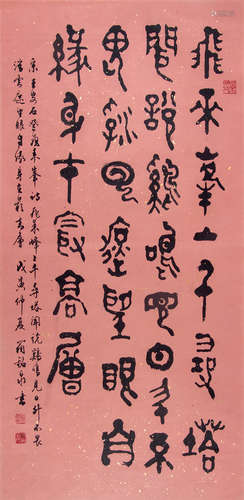 飛來峯上千尋塔
聞說雞鳴見日昇不
畏浮雲遮望眼自
緣身在最高層
宋王安石登飛來峯詩飛來峰上千尋塔聞說雞鳴見日升不畏
浮雲遮望眼自緣身在最高層戊寅仲夏翁銘泉書